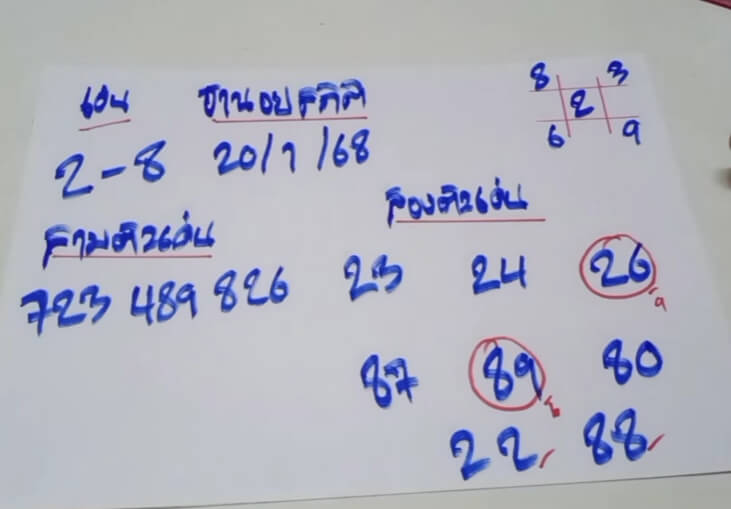 เด่น
8 3
2
6 9
2-8 20/1/68
สามตัวเด่น
สองตัวเด่น
723 489 826
23 24 26
87 89 80
22 88